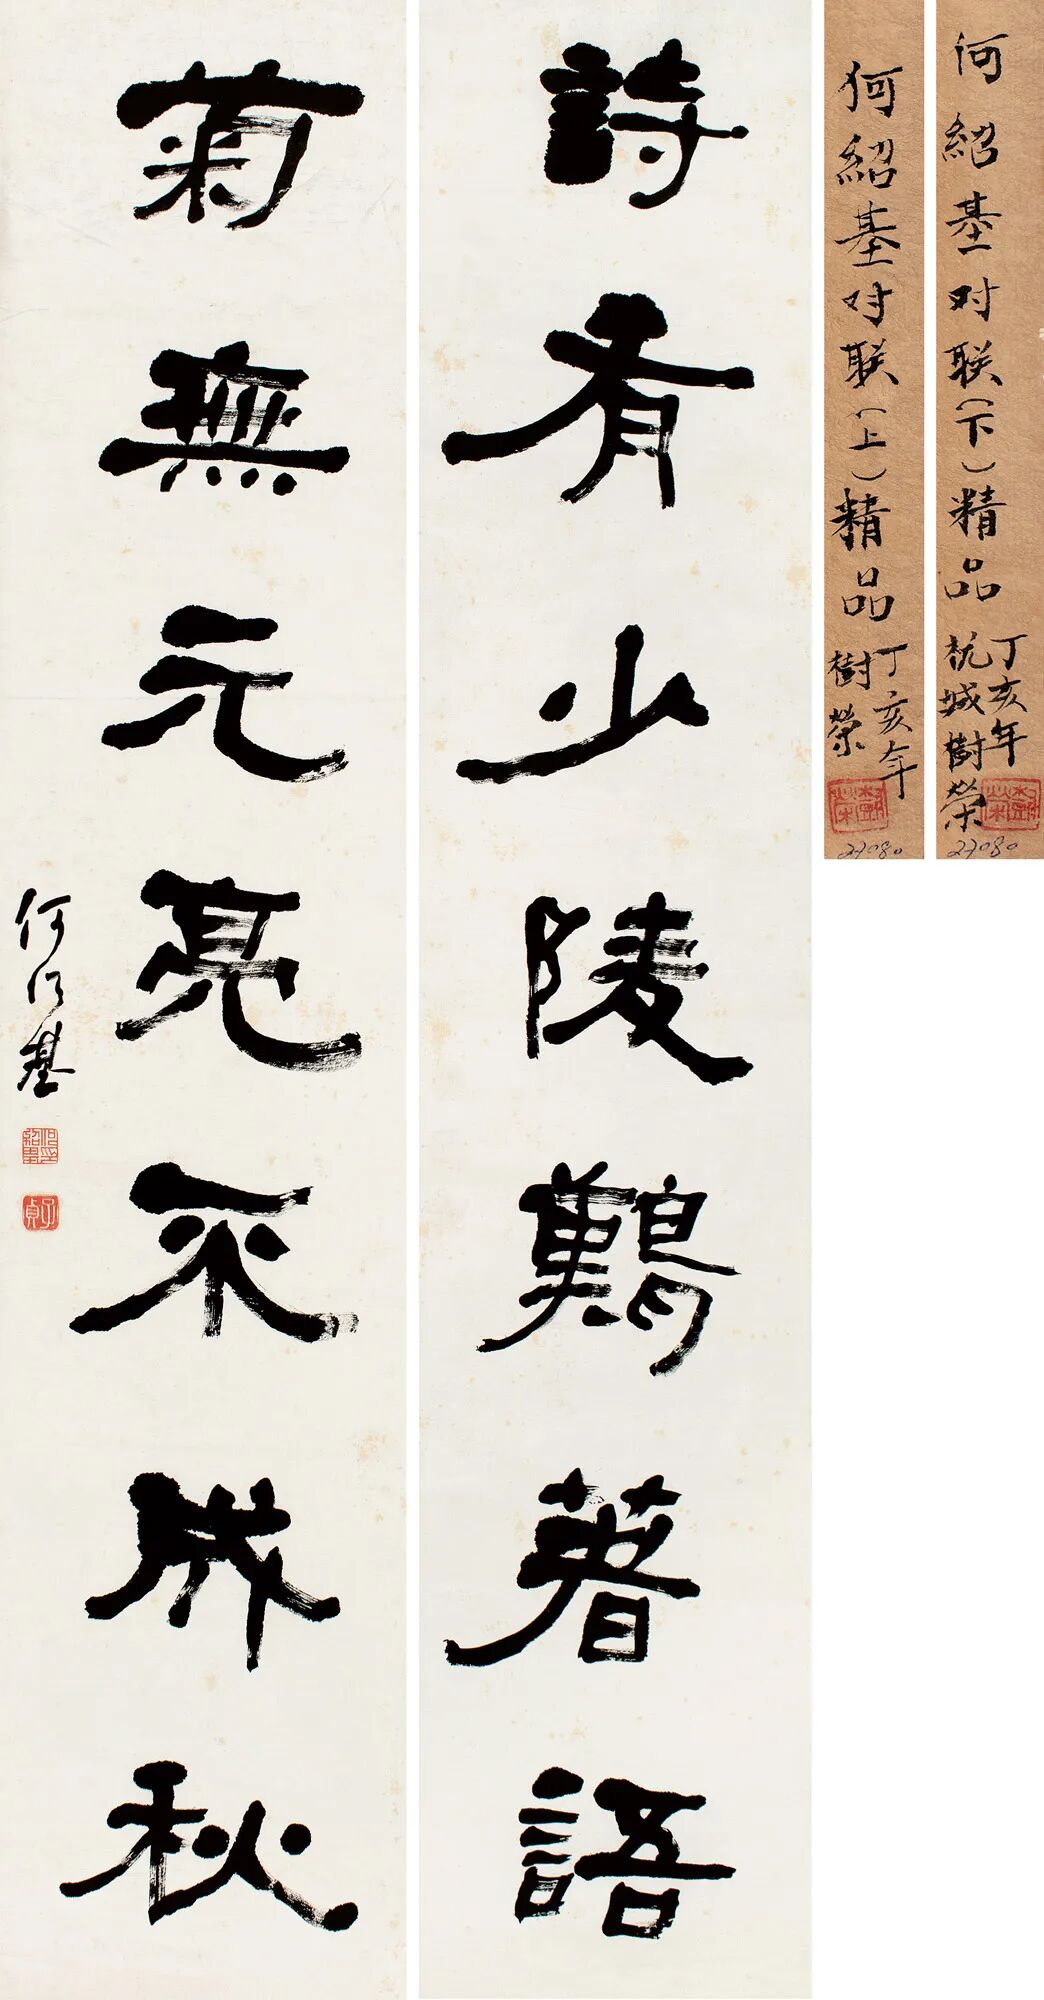 何紹基对联（下）精品
丁亥年
杭城樹榮
樹榮
27080
何紹基对联（上）精品
丁亥年
樹榮
樹榮
27080
詩有少陵難著語
菊無元亮不成秋
何紹基
何紹基印
子貞